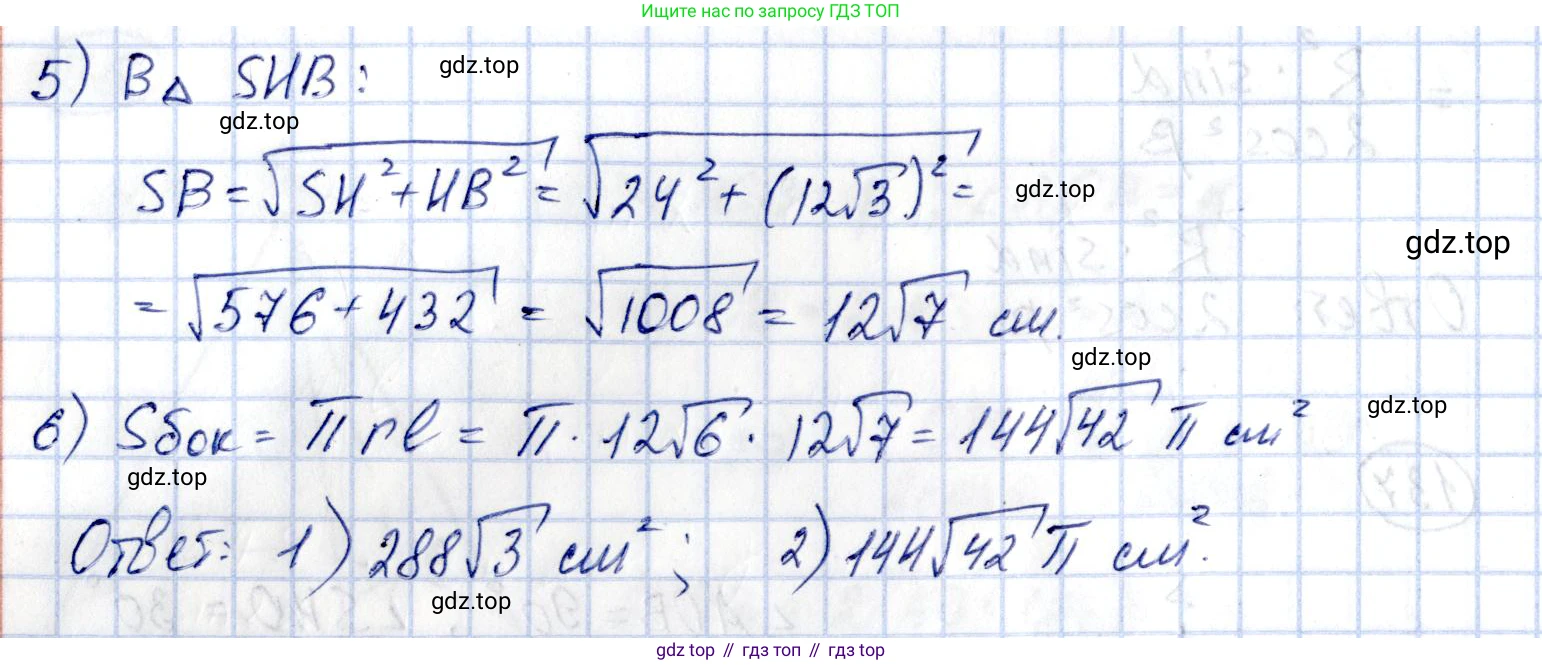 Ищите нас по запросу ГДЗ ТОП
5) В△ SHB:
gdz.top
gdz.top
SB = √(SH² + HB²) = √(24² + (12√3)²) =
gdz.top
gdz.top
= √(576 + 432) = √1008 = 12√7 см.
gdz.top
6) Sбок = πrl = π · 12√6 · 12√7 = 144√42 π см²
gdz.top
gdz.top
Ответ: 1) 288√3 см²; 2) 144√42 π см².
gdz.top
gdz.top // гдз топ // гдз.top